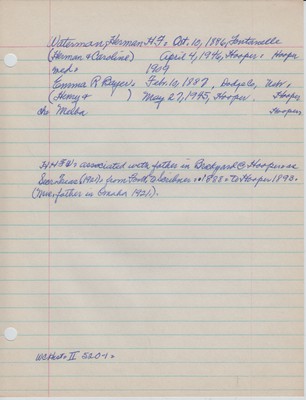 Waterman, Herman H.F. Oct. 10, 1886, Fontanelle
(Herman & Caroline) April 4, 1946, Hooper. Hooper
md. 1909
Emma R Beyer. Feb. 10, 1887, Dodge Co, Nebr.
(Henry & ) May 27, 1945, Hooper. Hooper
ch. Melba Hooper
HHFW. associated with father in Brickyard @ Hooper as
(1921). from to Scribner 1888. to Hooper 1893.
father in Omaha 1921.)
II 520-1.